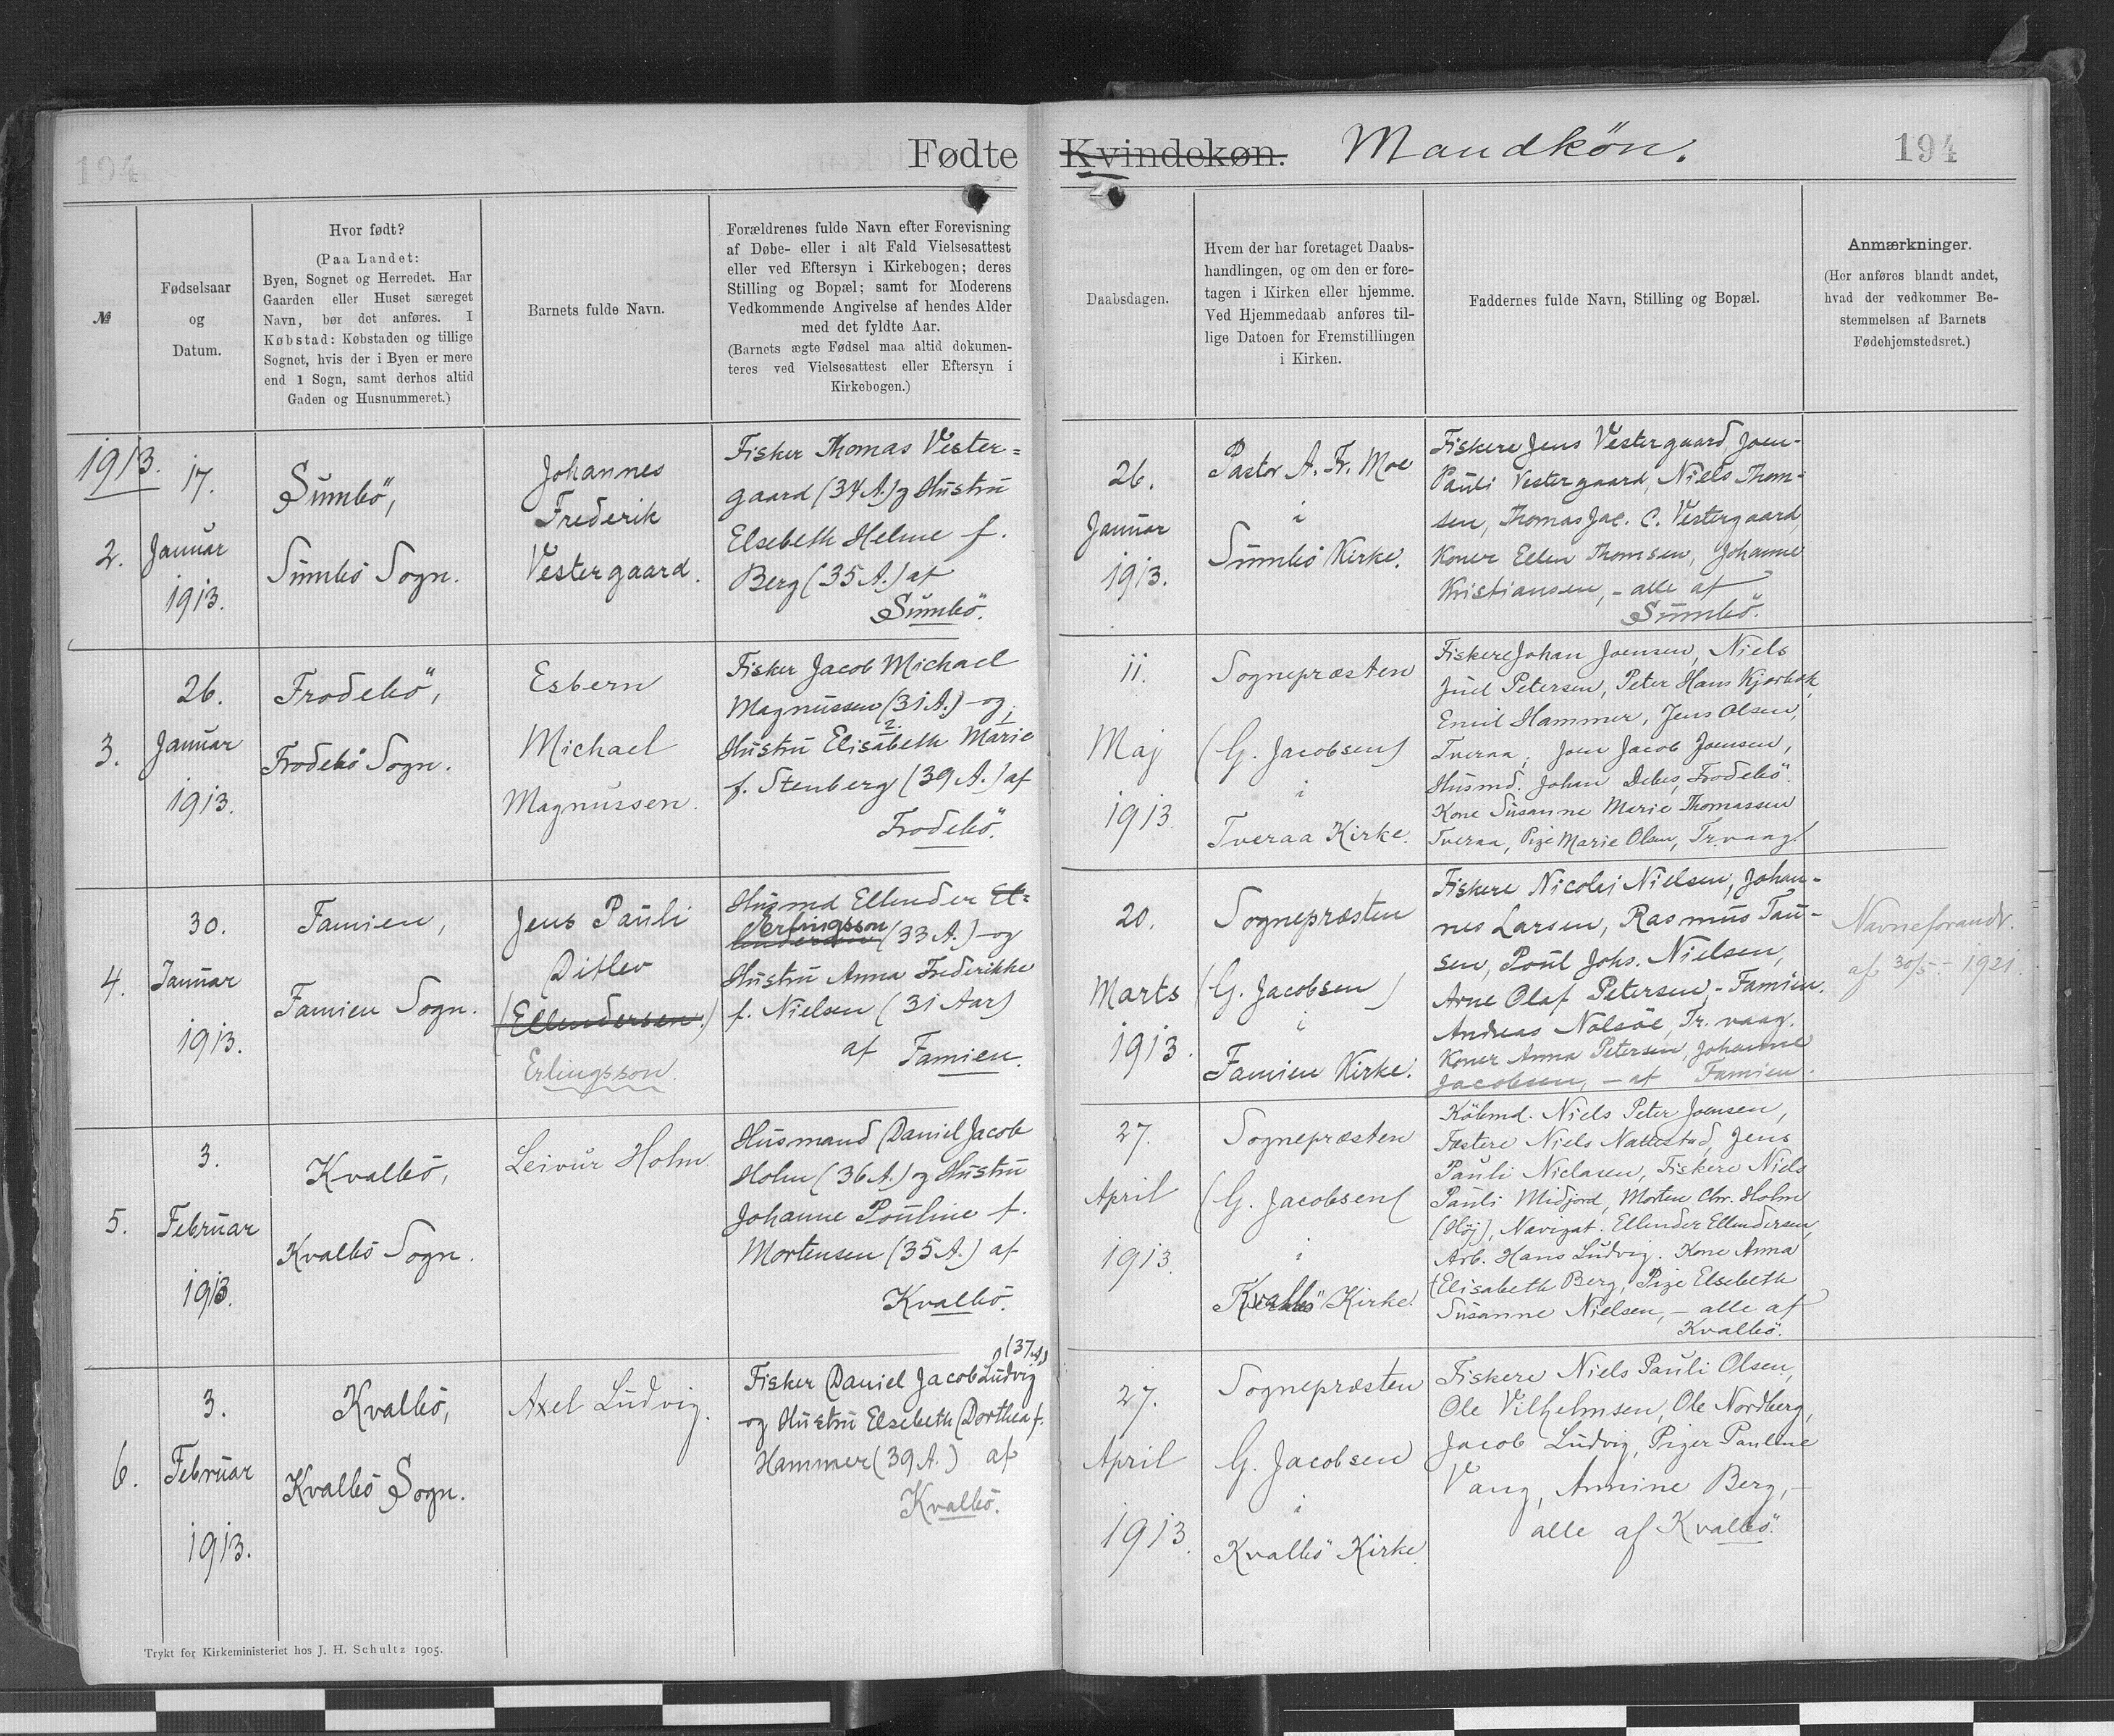 194
Fødte Kvindekøn. Mandkön. 194
№
Fødselsaar
og
Datum.
Hvor født?
(Paa Landet:
Byen, Sognet og Herredet. Har
Gaarden eller Huset særeget
Navn, bør det anføres. I
Købstad: Købstaden og tillige
Sognet, hvis der i Byen er mere
end 1 Sogn, samt derhos altid
Gaden og Husnummeret.)
Barnets fulde Navn.
Forældrenes fulde Navn efter Forevisning
af Døbe- eller i alt Fald Vielsesattest
eller ved Eftersyn i Kirkebogen; deres
Stilling og Bopæl; samt for Moderens
Vedkommende Angivelse af hendes Alder
med det fyldte Aar.
(Barnets ægte Fødsel maa altid dokumen-
teres ved Vielsesattest eller Eftersyn i
Kirkebogen.)
Daabsdagen.
Hvem der har foretaget Daabs-
handlingen, og om den er fore-
tagen i Kirken eller hjemme.
Ved Hjemmedaab anføres til-
lige Datoen for Fremstillingen
i Kirken.
Faddernes fulde Navn, Stilling og Bopæl.
Anmærkninger.
(Her anføres blandt andet,
hvad der vedkommer Be-
stemmelsen af Barnets
Fødehjemstedsret.)
1913.
2.
17.
Januar
1913.
Sumbö,
Sumbö Sogn.
Johannes
Frederik
Vestergaard.
Fisker Thomas Vester=
gaard (34 A.) og Hustru
Elsebeth Helene f.
Berg (35 A.) af
Sumbö.
26.
Januar
1913.
Pastor A. Fr. Moe
i
Sumbö Kirke.
Fiskere Jens Vestergaard Joen-
Pauli Vestergaard, Niels Thom-
sen, Thomas Jac. C. Vestergaard,
Koner Ellen Thomsen, Johanne
Kristiansen, - alle af
Sumbö.
3.
26.
Januar
1913.
Frodebö,
Frodebö Sogn.
Esbern
Michael
Magnussen.
Fisker Jacob Michael
Magnussen (31 A.) - og
Hustru Elisabeth Marie
f. Stenberg (39 A.) af
Frodebö.
11.
Maj
1913
Sognepræsten
(G. Jacobsen)
i
Tveraa Kirke.
Fiskere Johan Joensen, Niels
Juel Petersen, Peter Hans Kjærbæk,
Emil Hammer, Jens Olsen,
Tveraa; Joen Jacob Joensen,
Husmd. Johan Debes, Frodebö.
Kone Susanne Marie Thomassen
Tveraa, Pige Marie Olsen, Tr.vaag.
4.
30.
Januar
1913.
Famien,
Famien Sogn.
Jens Pauli
Ditlev
(Ellendersen.)
Erlingsson.
Husmd Ellender El=
Erlingsson
lendersen (33 A.) - og
Hustru Anna Frederikke
f. Nielsen (31 Aar)
af Famien.
20.
Marts
1913.
Sognepræsten
(G. Jacobsen)
i
Famien Kirke.
Fiskere Nicolej Nielsen, Johan-
nes Larsen, Rasmus Tau-
sen, Poul Johs. Nielsen,
Arne Olaf Petersen, - Famien.
Andreas Nolsöe, Tr. vaag.
Koner Anna Petersen, Johanne
Jacobsen, - af Famien.
Navneforandr.
af 30/5 - 1921.
5.
3.
Februar
1913.
Kvalbö,
Kvalbö Sogn.
Leivur Holm.
Husmand Daniel Jacob
Holm (36 A.) og Hustru
Johanne Pouline f.
Mortensen (35 A.) af
Kvalbö.
27.
April
1913.
Sognepræsten
(G. Jacobsen)
i
Kvalbö Kirke.
Köbmd. Niels Peter Joensen,
Fæstere Niels Nattestad, Jens
Pauli Niclasen, Fiskere Niels
Pauli Midjord, Morten Chr. Holm
(Höj), Navigat. Ellender Ellendersen,
Arb. Hans Ludvig. Kone Anna
Elisabeth Berg, Pige Elsebeth
Susanne Nielsen, - alle af
Kvalbö.
6.
3.
Februar
1913.
Kvalbö,
Kvalbö Sogn.
Axel Ludvig.
(37 A)
Fisker Daniel Jacob Ludvig
og Hustru Elsebeth Dorthea f.
Hammer (39 A.) af
Kvalbö.
27.
April
1913.
Sognepræsten
G. Jacobsen
i
Kvalbö Kirke.
Fiskere Niels Pauli Olsen,
Ole Vilhelmsen, Ole Nordberg,
Jacob Ludvig, Piger Pauline
Vang, Annine Berg, -
alle af Kvalbö.
Trykt for Kirkeministeriet hos J. H. Schultz 1905.